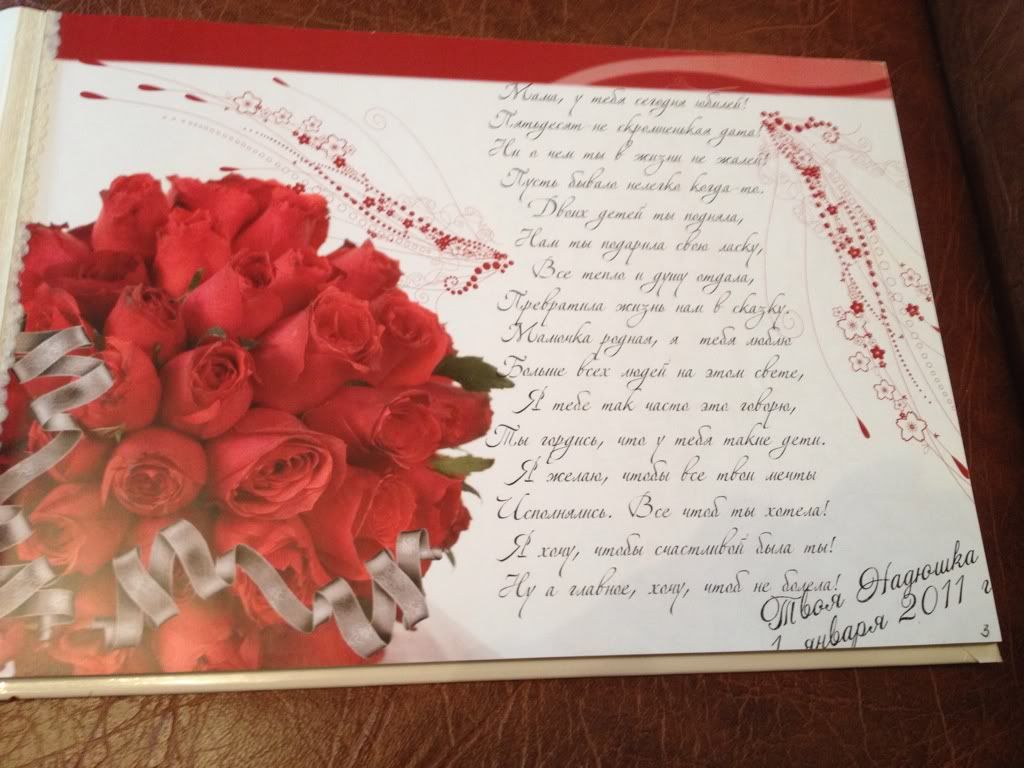 Мама, у тебя сегодня юбилей!
Пятьдесят не скромненькая дата!
Ни о чем ты в жизни не жалей!
Пусть бывало нелегко когда-то.
Двоих детей ты подняла,
Нам ты подарила свою ласку,
Все тепло и душу отдала,
Превратила жизнь нам в сказку.
Мамочка родная, я тебя люблю
Больше всех людей на этом свете,
Я тебе так часто это говорю,
Ты гордись, что у тебя такие дети.
Я желаю, чтобы все твои мечты
Исполнялись. Все чтоб ты хотела!
Я хочу, чтобы счастливой была ты!
Ну а главное, хочу, чтоб не болела!
Твоя Надюшка
1 января 2011 г
3